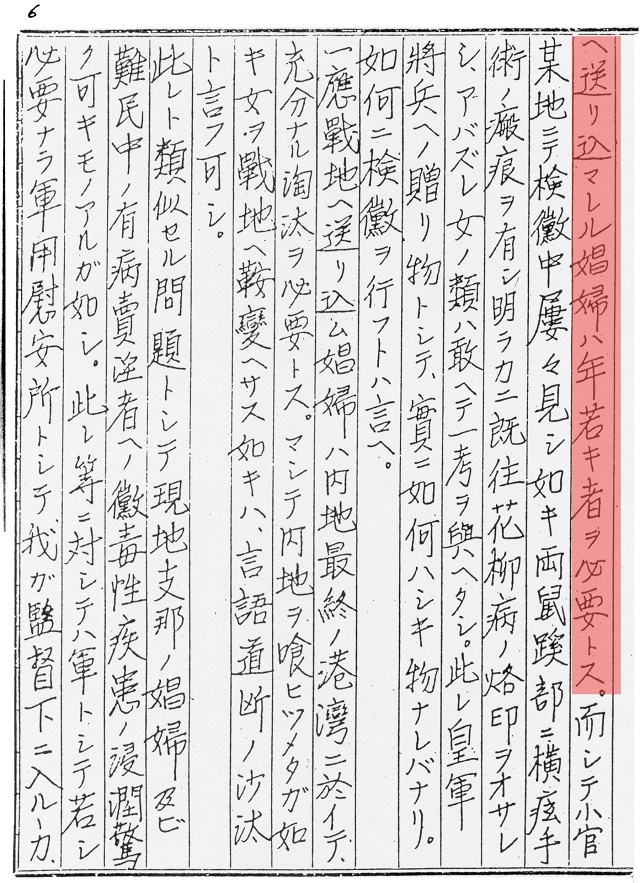 6
ヘ送リ込マレル娼婦ハ年若キ者ヲ必要トス。而シテ小官
某地ニテ検黴中屢々見シ如キ両鼠蹊部ニ横痃手
術ノ瘢痕ヲ有シ明ラカニ既往花柳病ノ烙印ヲオサレ
シ、アバズレ女ノ類ハ敢ヘテ一考ヲ與ヘタシ。此レ皇軍
將兵ヘノ贈リ物トシテ、實ニ如何ハシキ物ナレバナリ。
如何ニ検黴ヲ行フトハ言ヘ。
一應戰地ヘ送リ込ム娼婦ハ内地最終ノ港灣ニ於イテ、
充分ナル淘汰ヲ必要トス。マシテ内地ヲ喰ヒツメタガ如
キ女ヲ戰地ヘ鞍變ヘサス如キハ、言語道断ノ沙汰
ト言フ可シ。
此レト類似セル問題トシテ現地支那ノ娼婦及ビ
難民中ノ有病賣淫者ヘノ黴毒性疾患ノ浸潤驚
ク可キモノアルガ如シ。此レ等ニ対シテハ軍トシテ若シ
必要ナラ軍用慰安所トシテ我ガ監督下ニ入ルーカ、